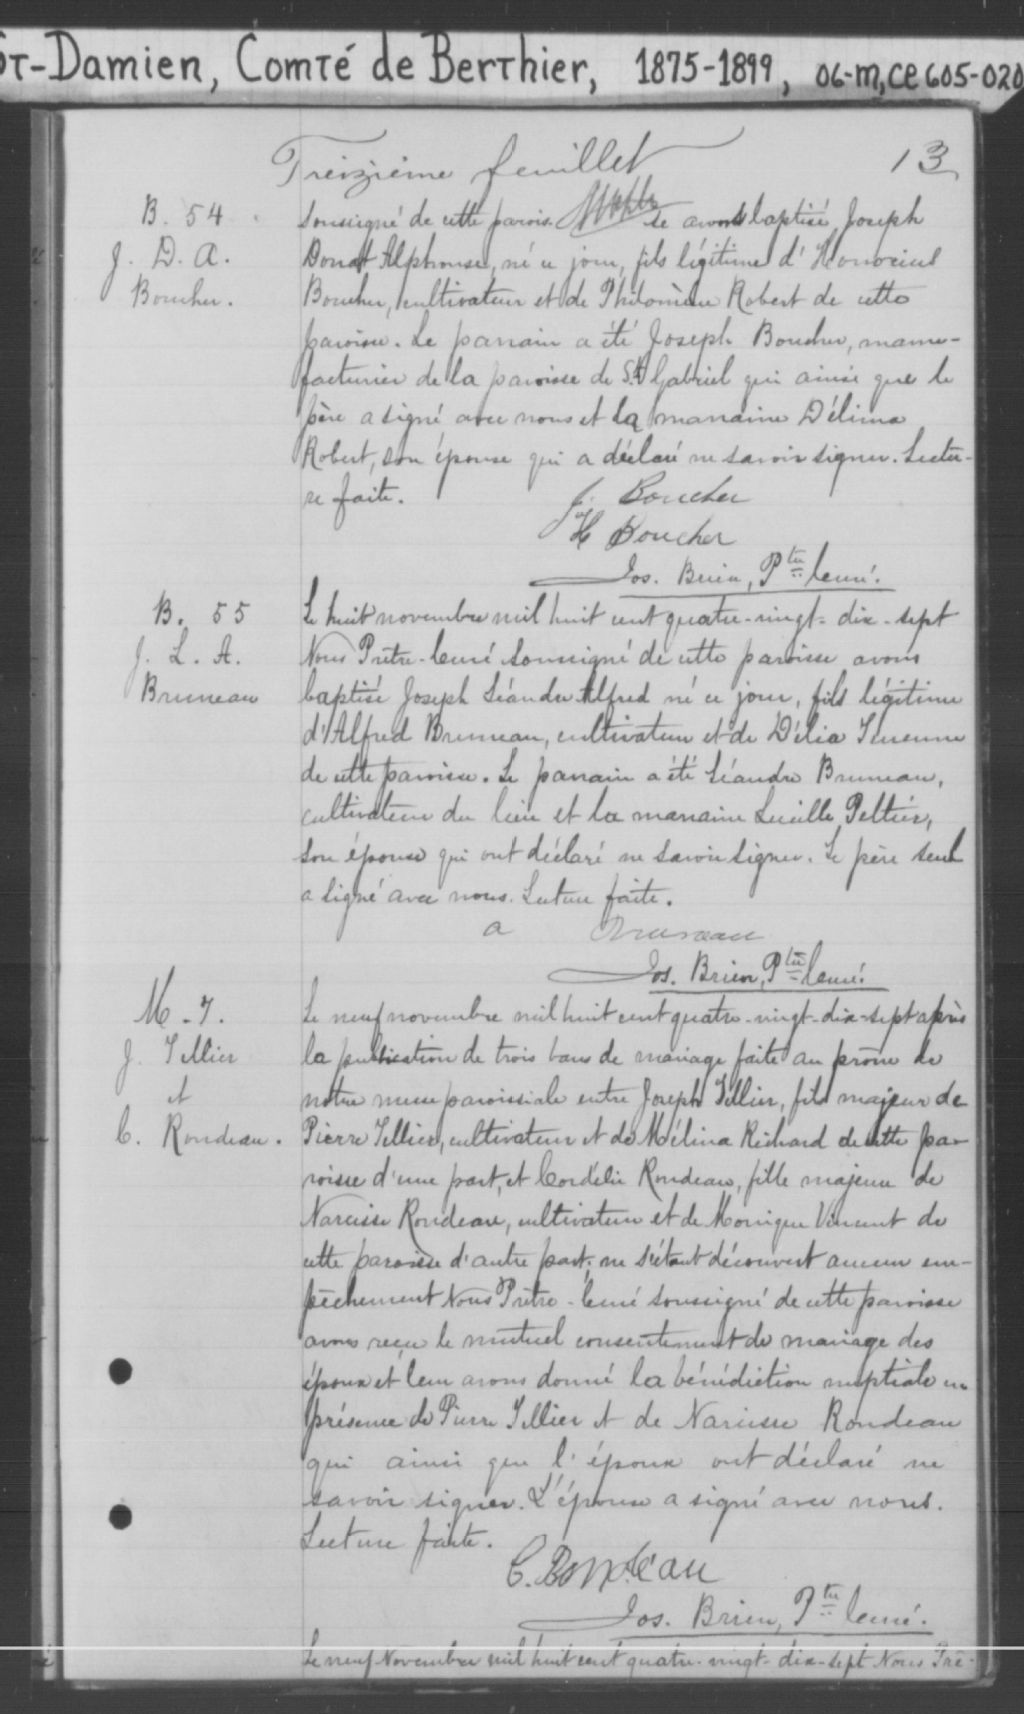 ST-Damien, Comté de Berthier, 1875-1899, 06-M,CE605-020
Treizième feuillet 13
B. 54
J. D. A.
Boucher.
soussigné de cette parois se avons baptisé Joseph
Donat Alphonse, né ce jour, fils légitime d'
Boucher, cultivateur et de Philomène Robert de cette
paroisse. Le parrain a été Joseph Boucher, manu-
facturier de la paroisse de St Gabriel qui ainsi que le
père a signé avec nous et la marraine Délima
Robert, son épouse qui a déclaré ne savoir signer. Lectu-
re faite.
J. Boucher
H Boucher
Jos. Brien, Ptre Curé.
B. 55
J. L. A.
Bruneau
Le huit novembre mil huit cent quatre-vingt-dix-sept
Nous Prêtre-Curé soussigné de cette paroisse avons
baptisé Joseph Léandre Alfred né ce jour, fils légitime
d'Alfred Bruneau, cultivateur et de Délia
de cette paroisse. Le parrain a été Léandre Bruneau,
cultivateur du lieu et la marraine Lucille Peltier,
son épouse qui ont déclaré ne savoir signer. Le père seul
a signé avec nous. Lecture faite.
a Bruneau
Jos. Brien, Ptre Curé.
M. 7.
J. Tellier
et
C. Rondeau.
Le neuf novembre mil huit cent quatre-vingt-dix-sept après
la publication de trois bans de mariage faite au prône de
notre messe paroissiale entre Joseph Tellier, fils majeur de
Pierre Tellier, cultivateur et de Mélina Richard de cette pa-
roisse d'une part, et Cordélie Rondeau, fille majeure de
Narcisse Rondeau, cultivateur et de Monique Vincent de
cette paroisse d'autre part; ne s'étant découvert aucun em-
pêchement Nous Prêtre-Curé soussigné de cette paroisse
avons reçu le mutuel consentement de mariage des
époux et leur avons donné la bénédiction nuptiale en
présence de Pierre Tellier et de Narcisse Rondeau
qui ainsi que l'époux ont déclaré ne
savoir signer. L'épouse a signé avec nous.
Lecture faite.
C. Rondeau
Jos. Brien, Ptre Curé.
Le neuf Novembre mil huit cent quatre-vingt-dix-sept Nous Prê-